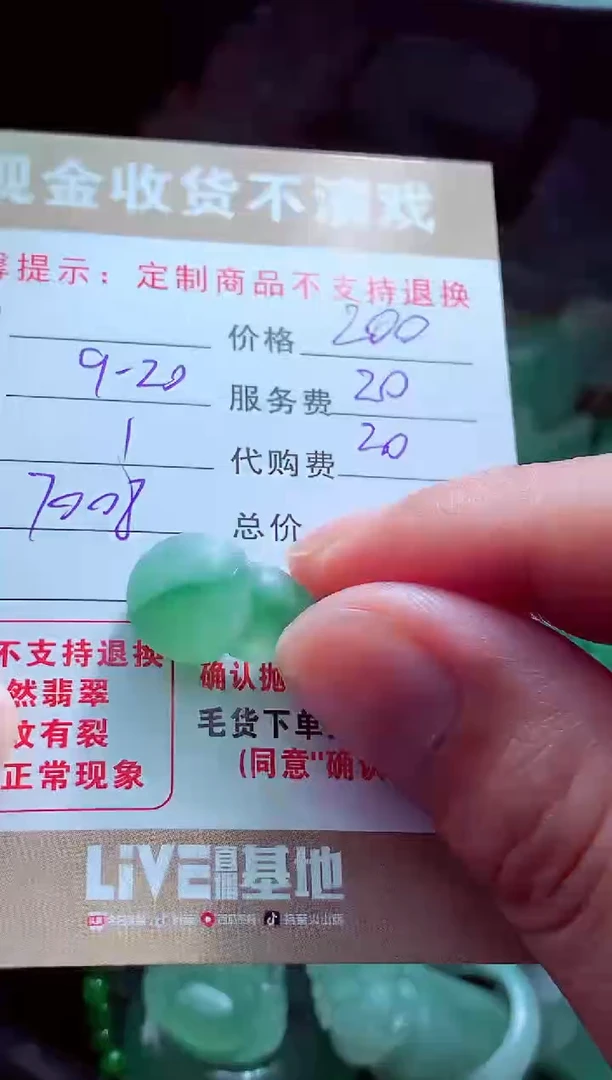 现金收货不演戏
馨提示：定制商品不支持退换
价格 200
9-20 服务费 20
1 代购费 20
7008 总价
不支持退换
然翡翠
纹有裂
正常现象
确认抛
毛货下单
(同意"确认
LiVE直播基地